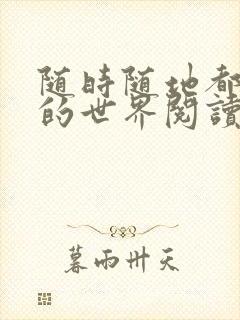 随時随地都
的世界閱讀
暮雨卅天